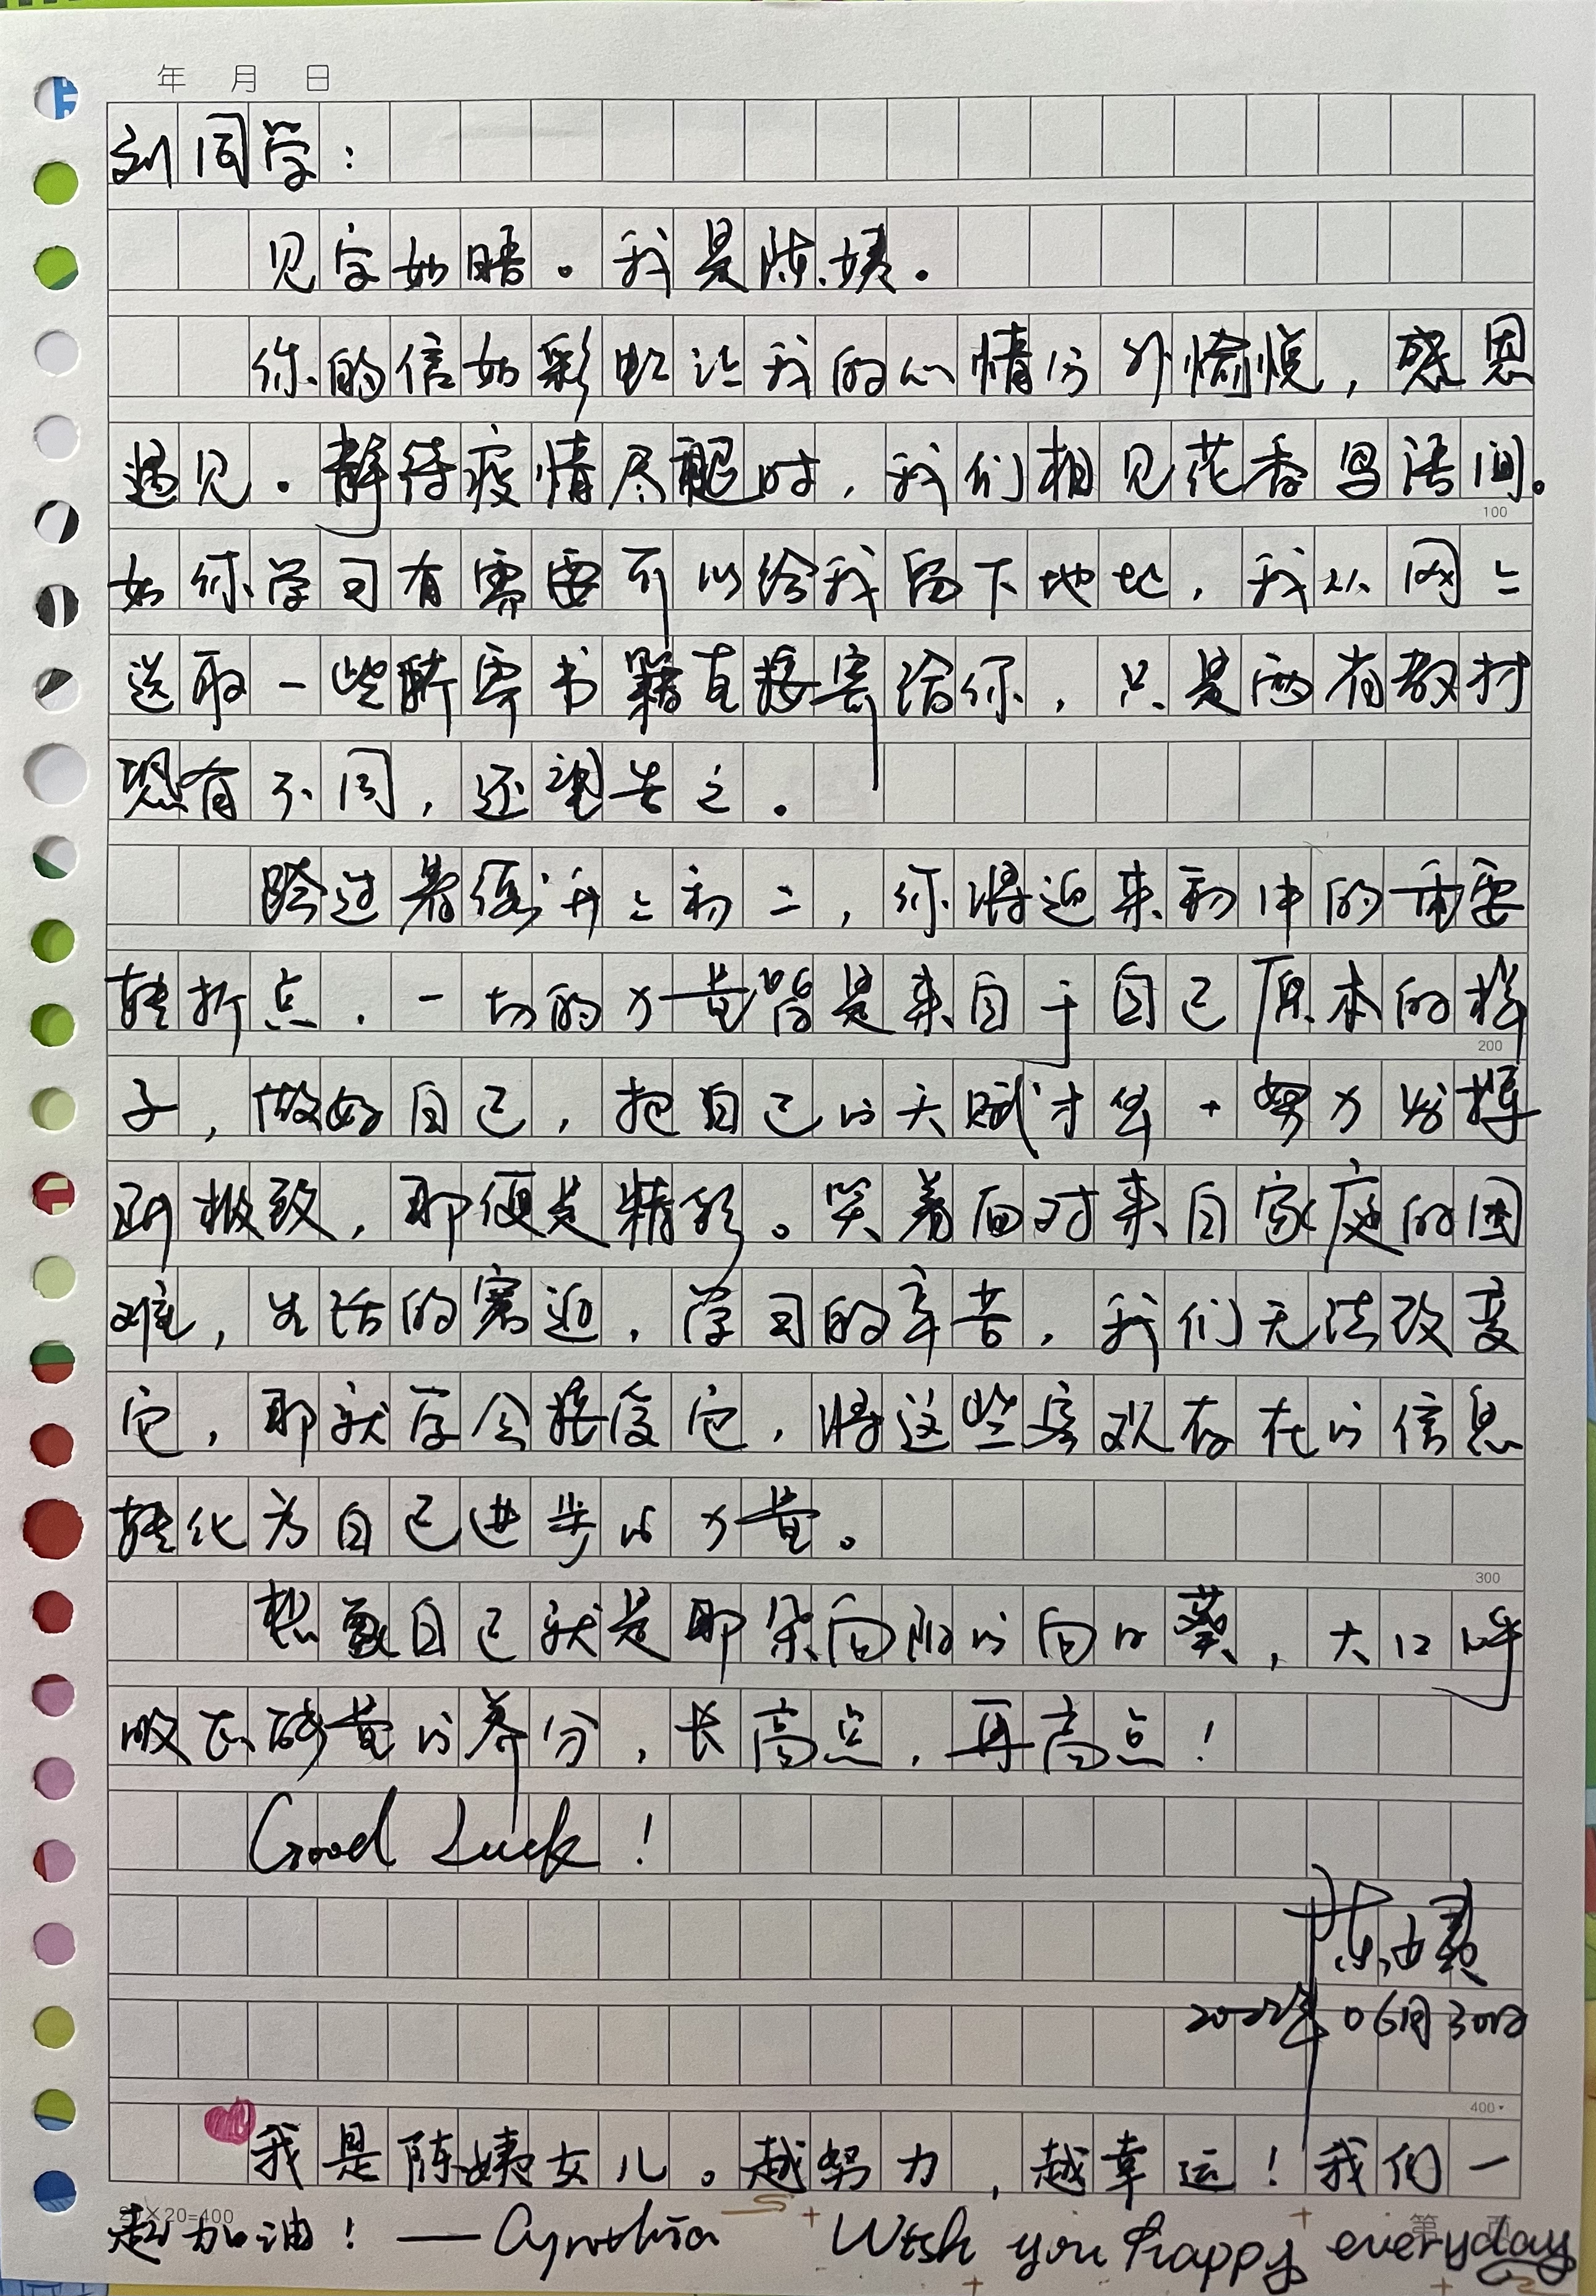 年 月 日
刘同学：
见字如晤。我是陈姨。
你的信如彩虹让我的心情分外愉悦，感恩
遇见。静待疫情尽褪时，我们相见花香鸟语间。
100
如你学习有需要可以给我留下地址，我从网上
选取一些所需书籍直接寄给你，只是两省教材
恐有不同，还望告之。
跨过暑假升上初二，你将迎来初中的重要
转折点。一切的力量皆是来自于自己原本的样
200
子，做好自己，把自己的天赋才华+努力发挥
到极致，那便是精彩。笑着面对来自家庭的困
难，生活的窘迫，学习的辛苦，我们无法改变
它，那就学会接受它，将这些客观存在的信息
转化为自己进步的力量。
300
想象自己就是那朵向阳的向日葵，大口呼
吸正能量的养分，长高点，再高点！
Good Luck！
陈姨
2022年06月30日
400
我是陈姨女儿。越努力，越幸运！我们一
20×20=400
第 页
起加油！——Cynthia Wish you happy everyday